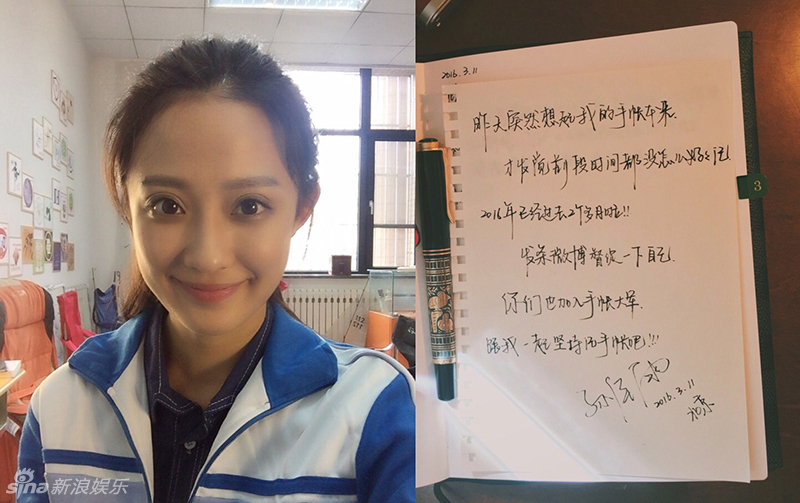 2016.3.11
昨天突然想起我的手帐本来
才发觉前段时间都没怎么好好记
2016年已经过去2个多月啦!!
发条微博督促一下自己
你们也加入手帐大军
跟我一起坚持用手帐吧!!!
2016.3.11
北京
3
sina新浪娱乐